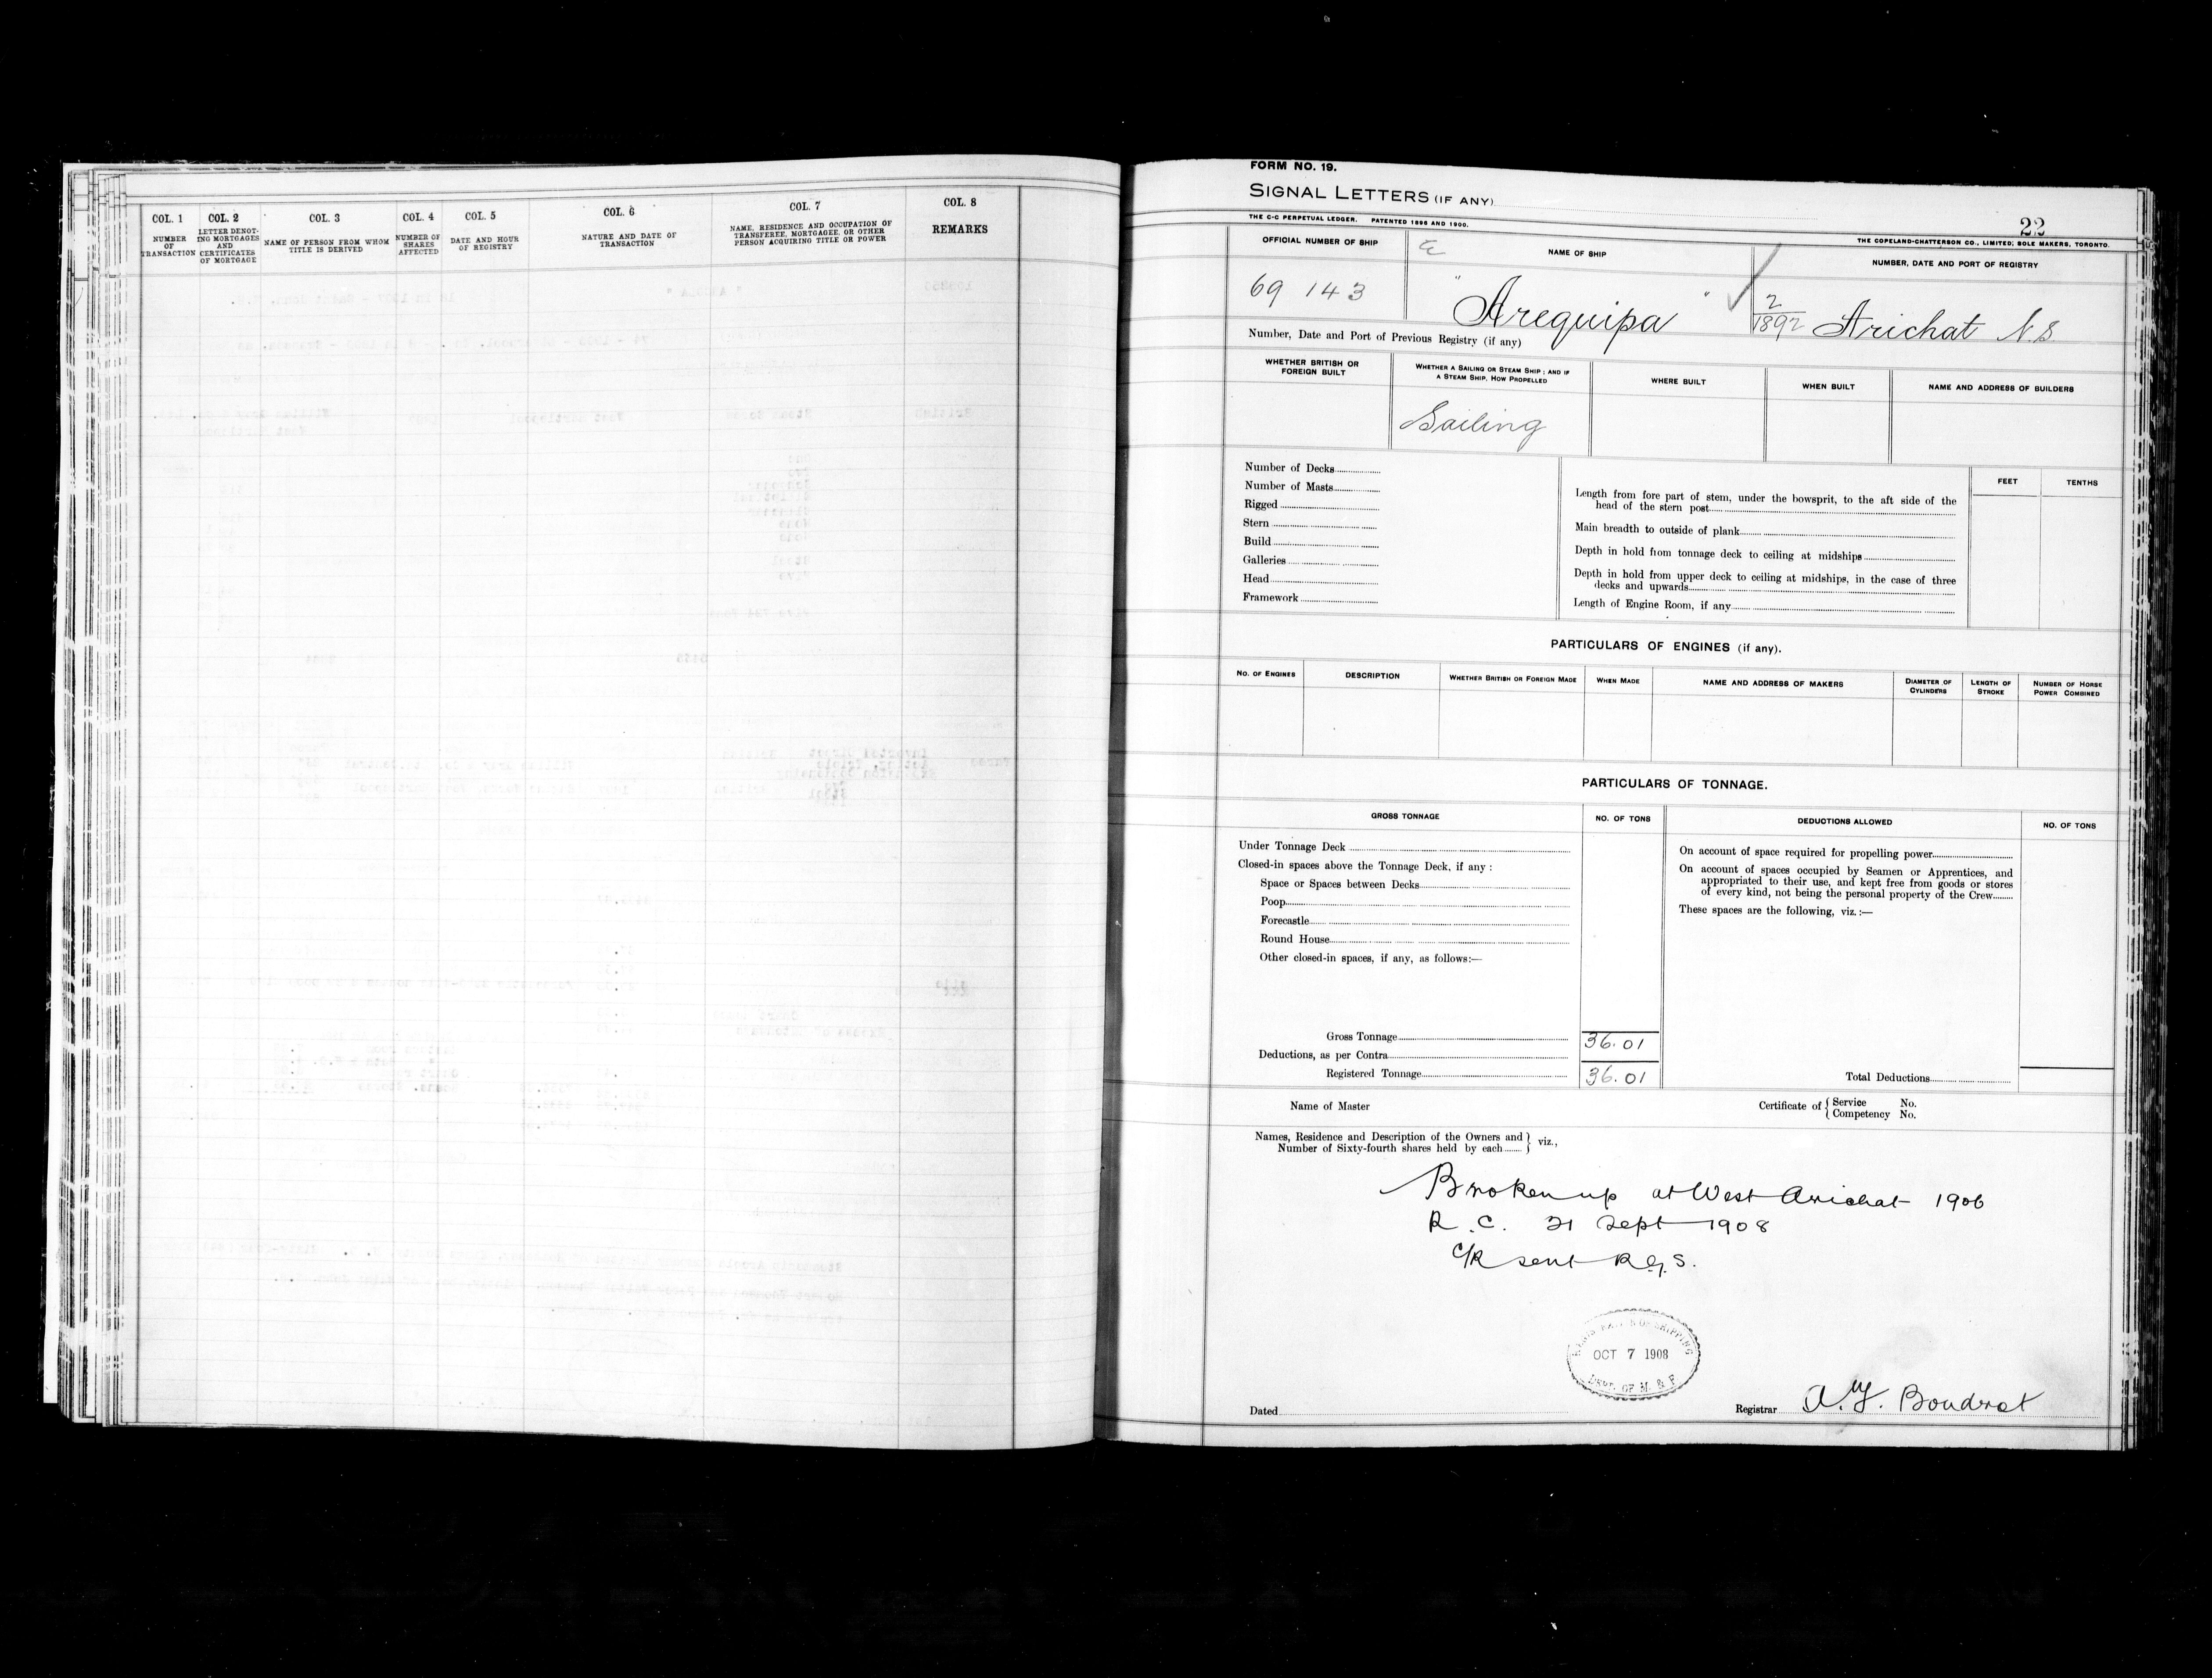 COL. 1
NUMBER
OF
TRANSACTION
COL. 2
LETTER DENOT-
ING MORTGAGES
AND
CERTIFICATES
OF MORTGAGE
COL. 3
NAME OF PERSON FROM WHOM
TITLE IS DERIVED
COL. 4
NUMBER OF
SHARES
AFFECTED
COL. 5
DATE AND HOUR
OF REGISTRY
COL. 6
NATURE AND DATE OF
TRANSACTION
COL. 7
NAME, RESIDENCE AND OCCUPATION OF
TRANSFEREE, MORTGAGEE, OR OTHER
PERSON ACQUIRING TITLE OR POWER
COL. 8
REMARKS
FORM NO. 19.
SIGNAL LETTERS (IF ANY)
THE C-C PERPETUAL LEDGER. PATENTED 1896 AND 1900.
22
THE COPELAND-CHATTERSON CO., LIMITED; SOLE MAKERS, TORONTO.
OFFICIAL NUMBER OF SHIP
NAME OF SHIP
NUMBER, DATE AND PORT OF REGISTRY
69 143
"Arequipa"
2
1892 Arichat N.S
Number, Date and Port of Previous Registry (if any)
WHETHER BRITISH OR
FOREIGN BUILT
WHETHER A SAILING OR STEAM SHIP; AND IF
A STEAM SHIP, HOW PROPELLED
WHERE BUILT
WHEN BUILT
NAME AND ADDRESS OF BUILDERS
Sailing
Number of Decks
Number of Masts
Rigged
Stern
Build
Galleries
Head
Framework
FEET
TENTHS
Length from fore part of stem, under the bowsprit, to the aft side of the
head of the stern post
Main breadth to outside of plank
Depth in hold from tonnage deck to ceiling at midships
Depth in hold from upper deck to ceiling at midships, in the case of three
decks and upwards
Length of Engine Room, if any
PARTICULARS OF ENGINES (if any).
NO. OF ENGINES
DESCRIPTION
WHETHER BRITISH OR FOREIGN MADE
WHEN MADE
NAME AND ADDRESS OF MAKERS
DIAMETER OF
CYLINDERS
LENGTH OF
STROKE
NUMBER OF HORSE
POWER COMBINED
PARTICULARS OF TONNAGE.
GROSS TONNAGE
NO. OF TONS
DEDUCTIONS ALLOWED
NO. OF TONS
Under Tonnage Deck
Closed-in spaces above the Tonnage Deck, if any :
Space or Spaces between Decks
Poop
Forecastle
Round House
Other closed-in spaces, if any, as follows:—
On account of space required for propelling power
On account of spaces occupied by Seamen or Apprentices, and
appropriated to their use, and kept free from goods or stores
of every kind, not being the personal property of the Crew
These spaces are the following, viz.:—
Gross Tonnage 36.01
Deductions, as per Contra
Registered Tonnage 36.01
Total Deductions
Name of Master
Certificate of { Service No.
Competency No.
Names, Residence and Description of the Owners and
Number of Sixty-fourth shares held by each } viz.,
Broken up at West Arichat 1906
R.C. 21 Sept 1908
C/R sent R.G.S.
OCT 7 1908
DEPT. OF M. & F
Dated
Registrar
Boudrot